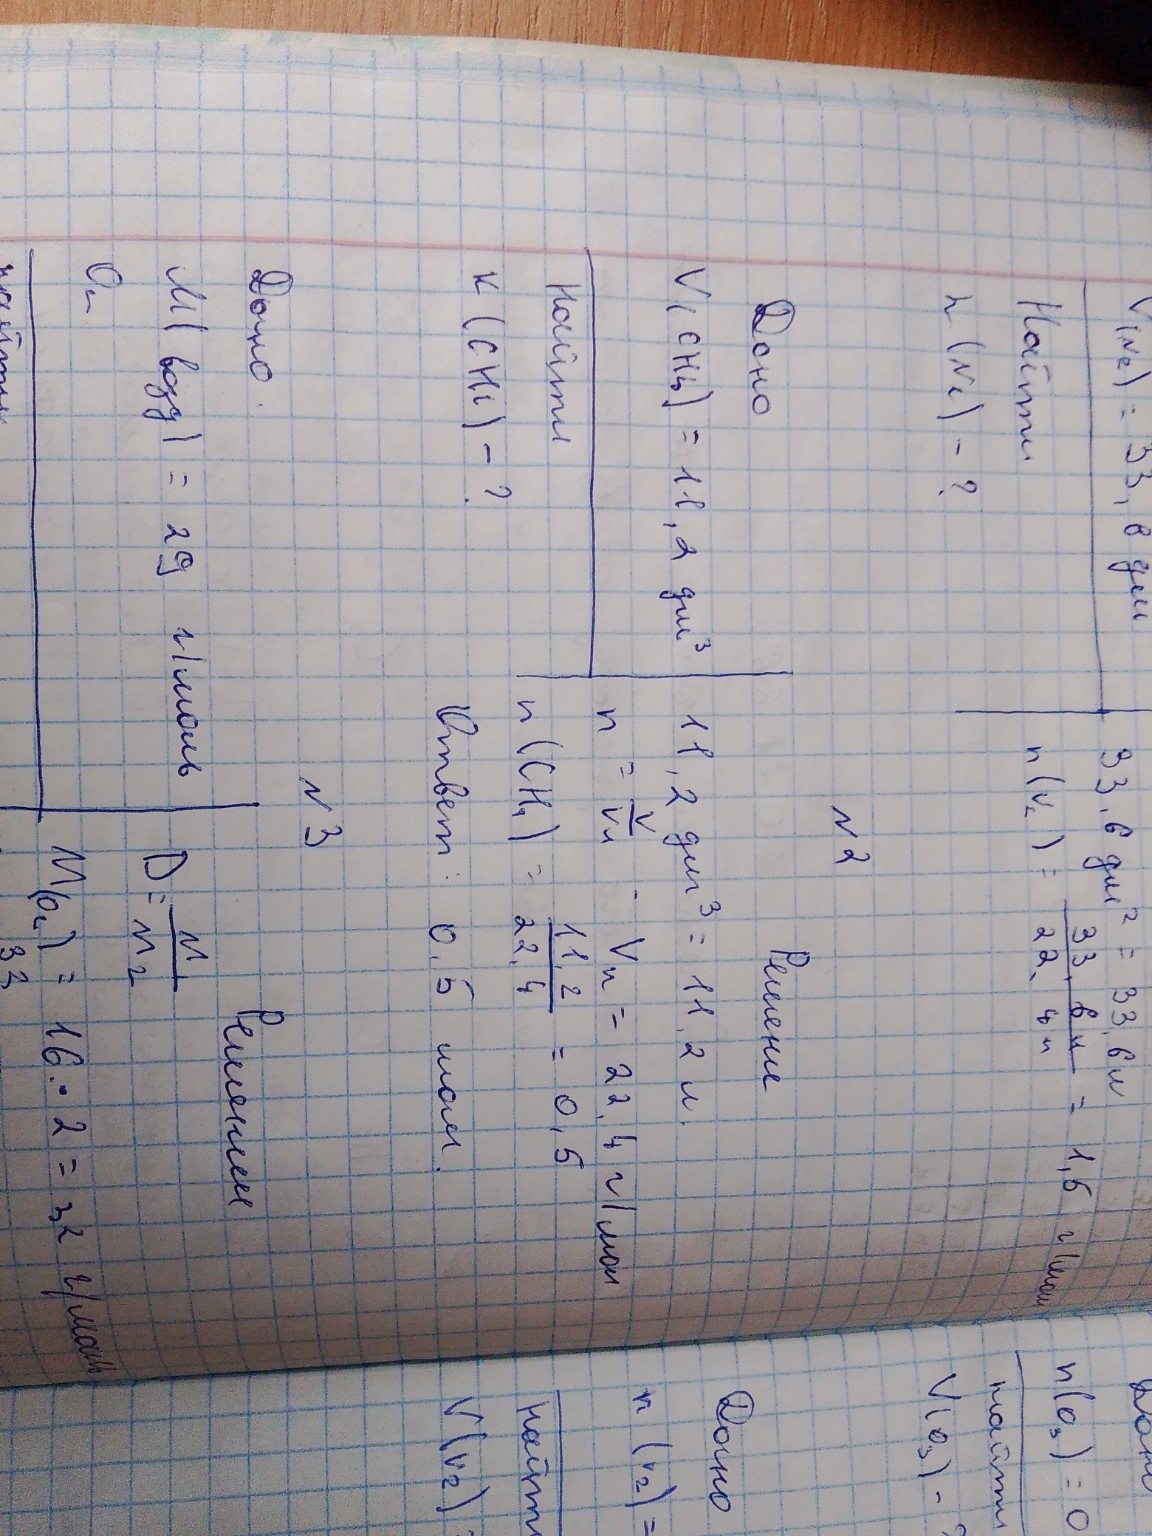 V(N2) = 33,6 дм
Найти
n (N2) - ?
33,6 дм² = 33,6 л
n(N2) = 33,6 л / 22,4 л = 1,5 г/мол
N2
Дано
V(CH4) = 11,2 дм³
Найти
n (CH4) - ?
Решение
11,2 дм³ = 11,2 л
n = V/Vм . Vм = 22,4 л/мол
n(CH4) = 11,2 / 22,4 = 0,5
Ответ: 0,5 мол.
N3
Дано.
M(возд) = 29 г/моль
O2
Найти
Решение
D = M / M2
M(O2) = 16 · 2 = 32 г/мол
n(O3) = 0
Найти
V(O3) -
Дано
n (N2) =
Найти
V(N2)